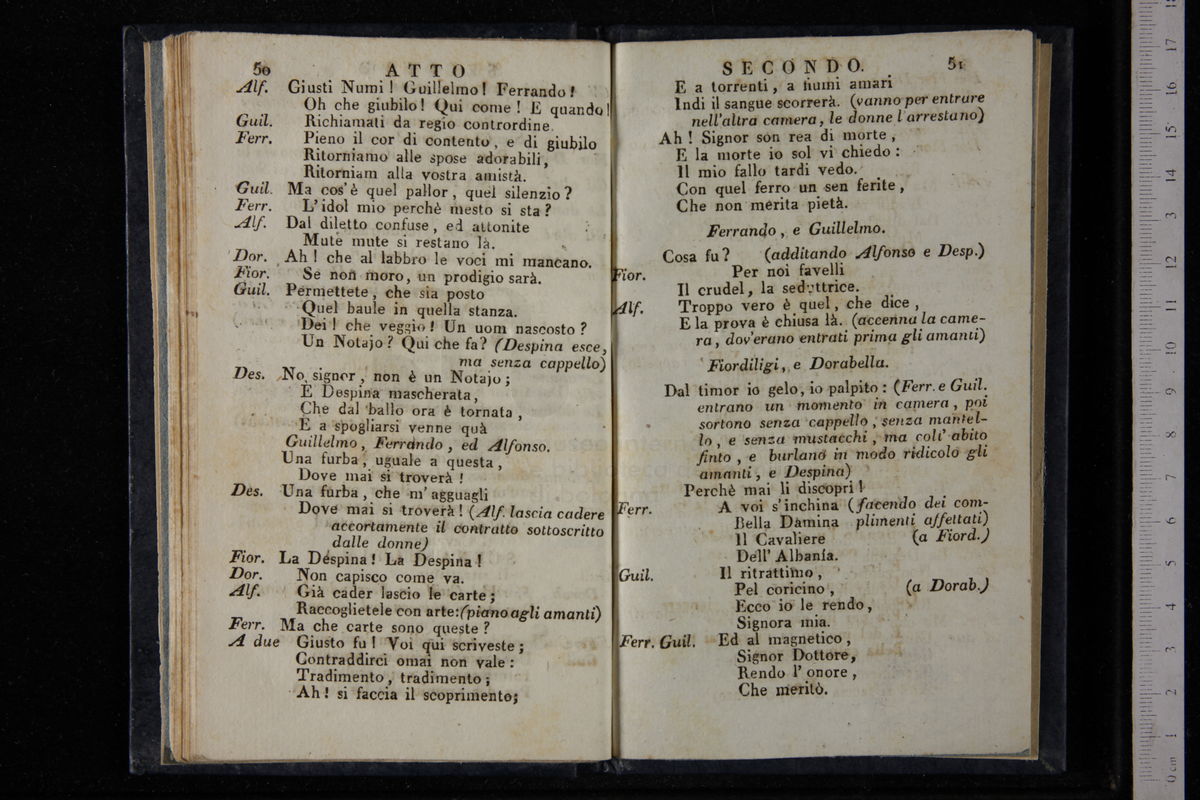 50 ATTO
Alf. Giusti Numi! Guillelmo! Ferrando!
Oh che giubilo! Qui come! E quando!
Guil. Richiamati da regio contrordine.
Ferr. Pieno il cor di contento, e di giubilo
Ritorniamo alle spose adorabili,
Ritorniam alla vostra amistà.
Guil. Ma cos'è quel pallor, quel silenzio?
Ferr. L'idol mio perchè mesto si sta?
Alf. Dal diletto confuse, ed attonite
Mute mute si restano là.
Dor. Ah! che al labbro le voci mi mancano.
Fior. Se non moro, un prodigio sarà.
Guil. Permettete, che sia posto
Quel baule in quella stanza.
Dei! che veggio! Un uom nascosto?
Un Notajo? Qui che fa? (Despina esce,
ma senza cappello)
Des. No, signor, non è un Notajo;
E Despina mascherata,
Che dal ballo ora è tornata,
E a spogliarsi venne quà
Guillelmo, Ferrando, ed Alfonso.
Una furba, uguale a questa,
Dove mai si troverà!
Des. Una furba, che m'agguagli
Dove mai si troverà! (Alf. lascia cadere
accortamente il contratto sottoscritto
dalle donne)
Fior. La Despina! La Despina!
Dor. Non capisco come va.
Alf. Già cader lascio le carte;
Raccoglietele con arte: (piano agli amanti)
Ferr. Ma che carte sono queste?
A due Giusto fu! Voi qui scriveste;
Contraddirci omai non vale:
Tradimento, tradimento;
Ah! si faccia il scoprimento;
SECONDO. 51
E a torrenti, a fiumi amari
Indi il sangue scorrerà. (vanno per entrare
nell'altra camera, le donne l'arrestano)
Ah! Signor son rea di morte,
E la morte io sol vi chiedo:
Il mio fallo tardi vedo.
Con quel ferro un sen ferite,
Che non merita pietà.
Ferrando, e Guillelmo.
Cosa fu? (additando Alfonso e Desp.)
Fior. Per noi favelli
Il crudel, la seduttrice.
Alf. Troppo vero è quel, che dice,
E la prova è chiusa là. (accenna la came-
ra, dov'erano entrati prima gli amanti)
Fiordiligi, e Dorabella.
Dal timor io gelo, io palpito: (Ferr. e Guil.
entrano un momento in camera, poi
sortono senza cappello, senza mantel-
lo, e senza mustacchi, ma coll' abito
finto, e burlano in modo ridicolo gli
amanti, e Despina)
Perchè mai li discopri!
Ferr. A voi s'inchina (facendo dei com-
Bella Damina plimenti affettati)
Il Cavaliere (a Fiord.)
Dell' Albania.
Guil. Il ritrattino,
Pel coricino, (a Dorab.)
Ecco io le rendo,
Signora mia.
Ferr. Guil. Ed al magnetico,
Signor Dottore,
Rendo l'onore,
Che meritò.
0 cm 1 2 3 4 5 6 7 8 9 10 11 12 13 14 15 16 17